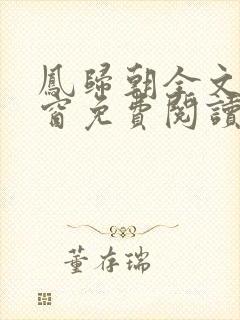 鳳歸朝全文
窗免費閱讀
董存瑞